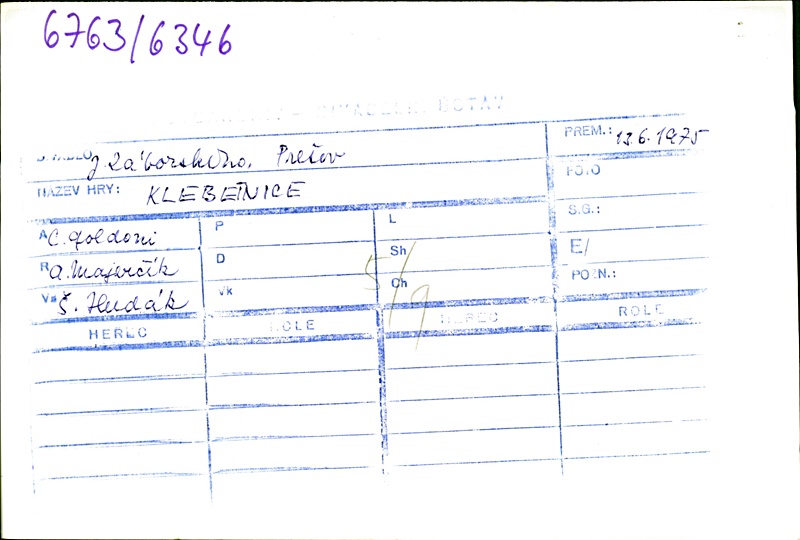 6763/6346
DIVADELNÍ ÚSTAV
DIVADLO J. Záborského, Prešov
PREM.: 13.6.1975
NÁZEV HRY: KLEBETNICE
FOTO
S.G.:
E/
POZN.:
A C. Goldoni
P
L
R A. Majerčík
D
Sh
Vs Š. Hudák
Vk
Ch
5/9
HEREC ROLE HEREC ROLE